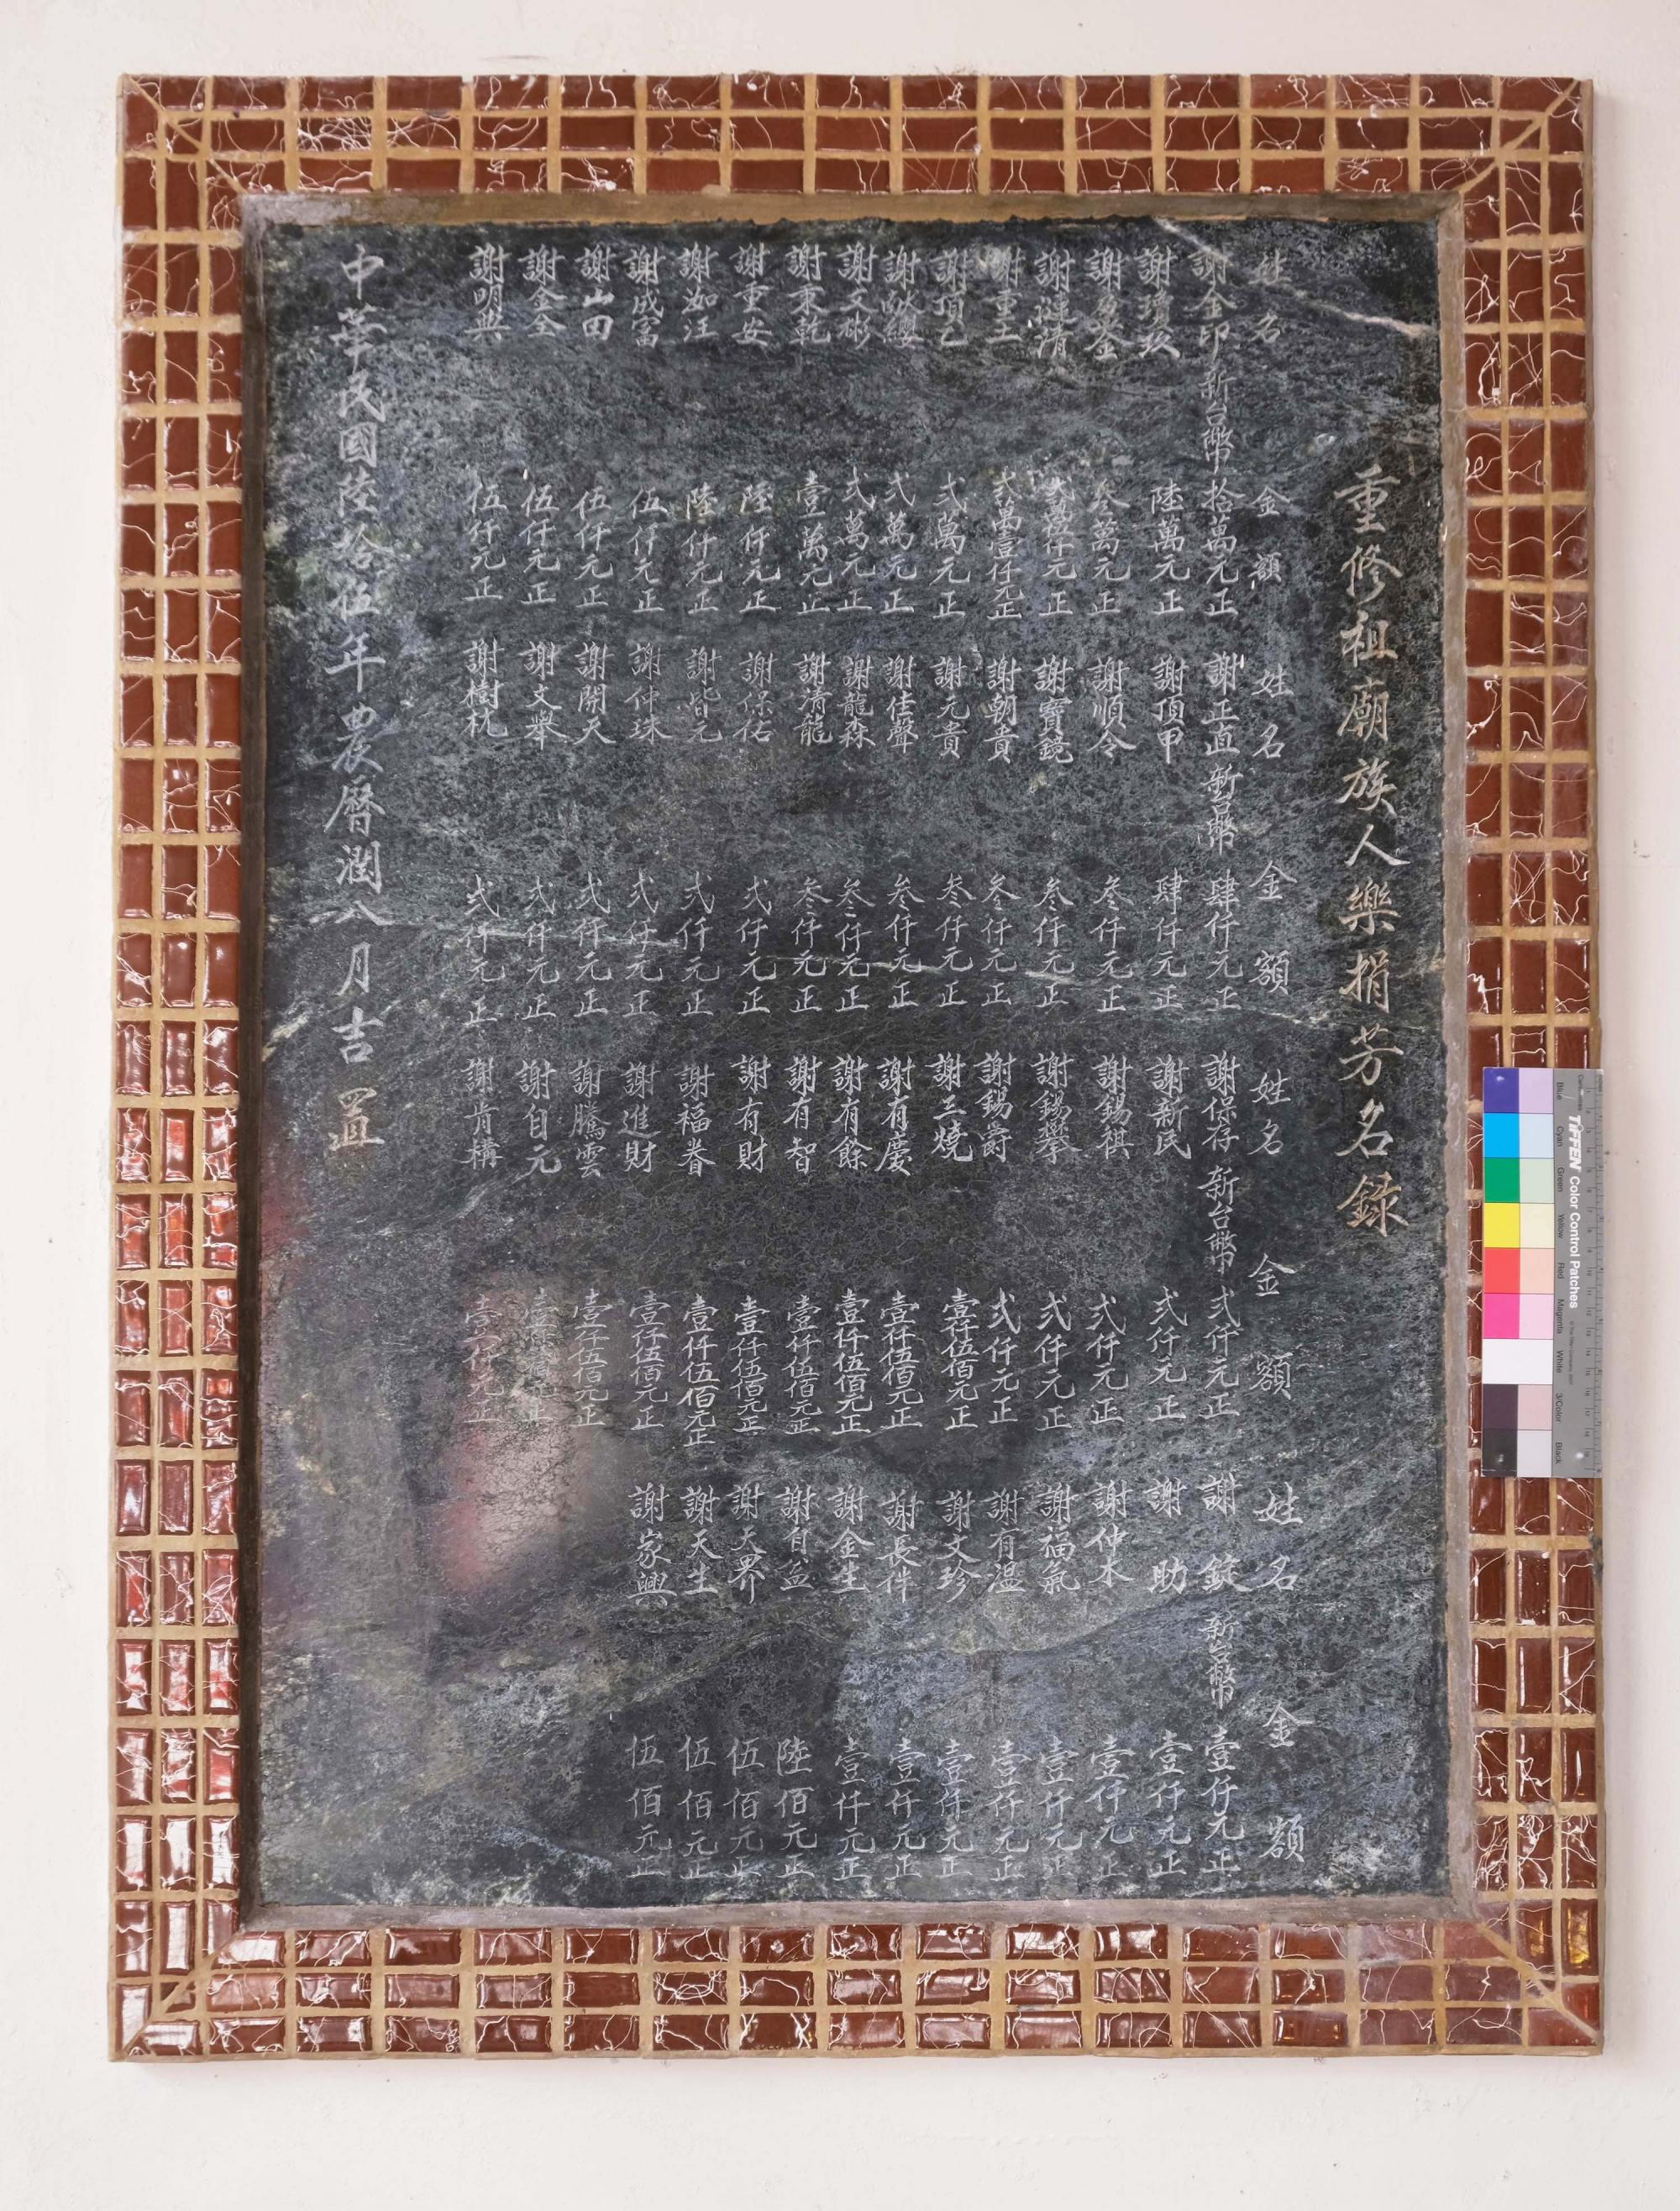 重修祖廟族人樂捐芳名錄
姓名 金額 姓名 金額 姓名 金額 姓名 金額
謝金印 新台幣 拾萬元正 謝正直 新台幣 肆仟元正 謝保存 新台幣 弍仟元正 謝錠 新台幣 壹仟元正
謝瓊玖 陸萬元正 謝頂甲 肆仟元正 謝新民 弍仟元正 謝助 壹仟元正
謝 金 叁萬元正 謝順令 叁仟元正 謝錫祺 弍仟元正 謝仲木 壹仟元正
謝漣清 仟元正 謝寶鏡 叁仟元正 謝錫攀 弍仟元正 謝福氣 壹仟元正
謝重土 弍萬壹仟元正 謝朝貴 叁仟元正 謝錫爵 弍仟元正 謝有溫 壹仟元正
謝頂乙 弍萬元正 謝元貴 叁仟元正 謝三燒 壹仟伍佰元正 謝文珍 壹仟元正
謝 纓 弍萬元正 謝佳聲 叁仟元正 謝有慶 壹仟伍佰元正 謝長徉 壹仟元正
謝文彬 弍萬元正 謝龍森 叁仟元正 謝有餘 壹仟伍佰元正 謝金生 壹仟元正
謝秉乾 壹萬元正 謝清龍 叁仟元正 謝有智 壹仟伍佰元正 謝自盆 陸佰元正
謝重安 陸仟元正 謝保佑 弍仟元正 謝有財 壹仟伍佰元正 謝天界 伍佰元正
謝汝汪 陸仟元正 謝皆元 弍仟元正 謝福眷 壹仟伍佰元正 謝天生 伍佰元正
謝成富 伍仟元正 謝仲珠 弍仟元正 謝進財 壹仟伍佰元正 謝家興 伍佰元正
謝山田 伍仟元正 謝開天 弍仟元正 謝騰雲 壹仟伍佰元正
謝金全 伍仟元正 謝文舉 弍仟元正 謝自元 壹仟 佰元正
謝明興 伍仟元正 謝樹枕 弍仟元正 謝肯構 壹仟元正
中華民國陸拾伍年農曆潤八月吉置